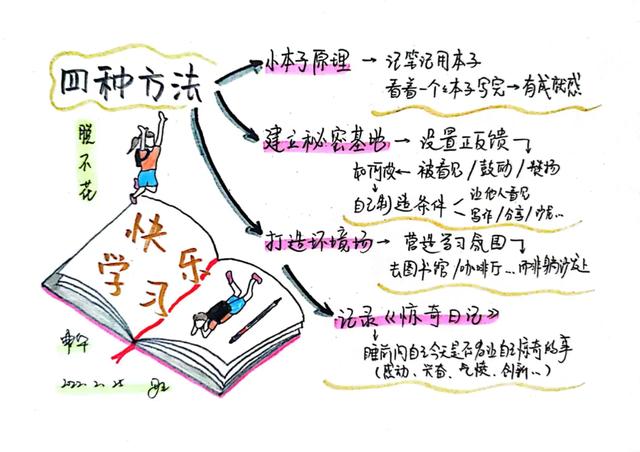 四种方法
脱不花
快乐
学习
小本子原理 → 记笔记用本子
看着一个个本子写完 → 有成就感
建立秘密基地 → 设置正反馈
如何做 ← 被看见/鼓励/赞扬
自己制造条件 < 让他人看见
写作/分享/沙龙…
打造环境场 → 营造学习氛围
去图书馆/咖啡厅…而非躺沙发上
记录《惊奇日记》
睡前问自己今天是否有让自己惊奇的事
(感动、兴奋、气愤、创新…)
2022.2.25